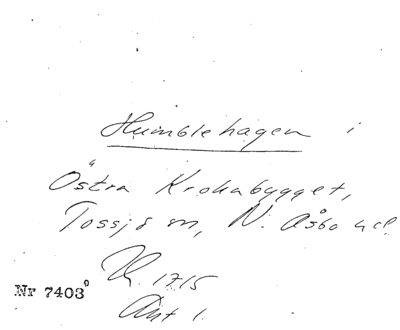 Humblehagen i
Östra Krokabygget,
Tossjö sn, N. Åsbo hd.
1715
Nr 7403
Akt 1.